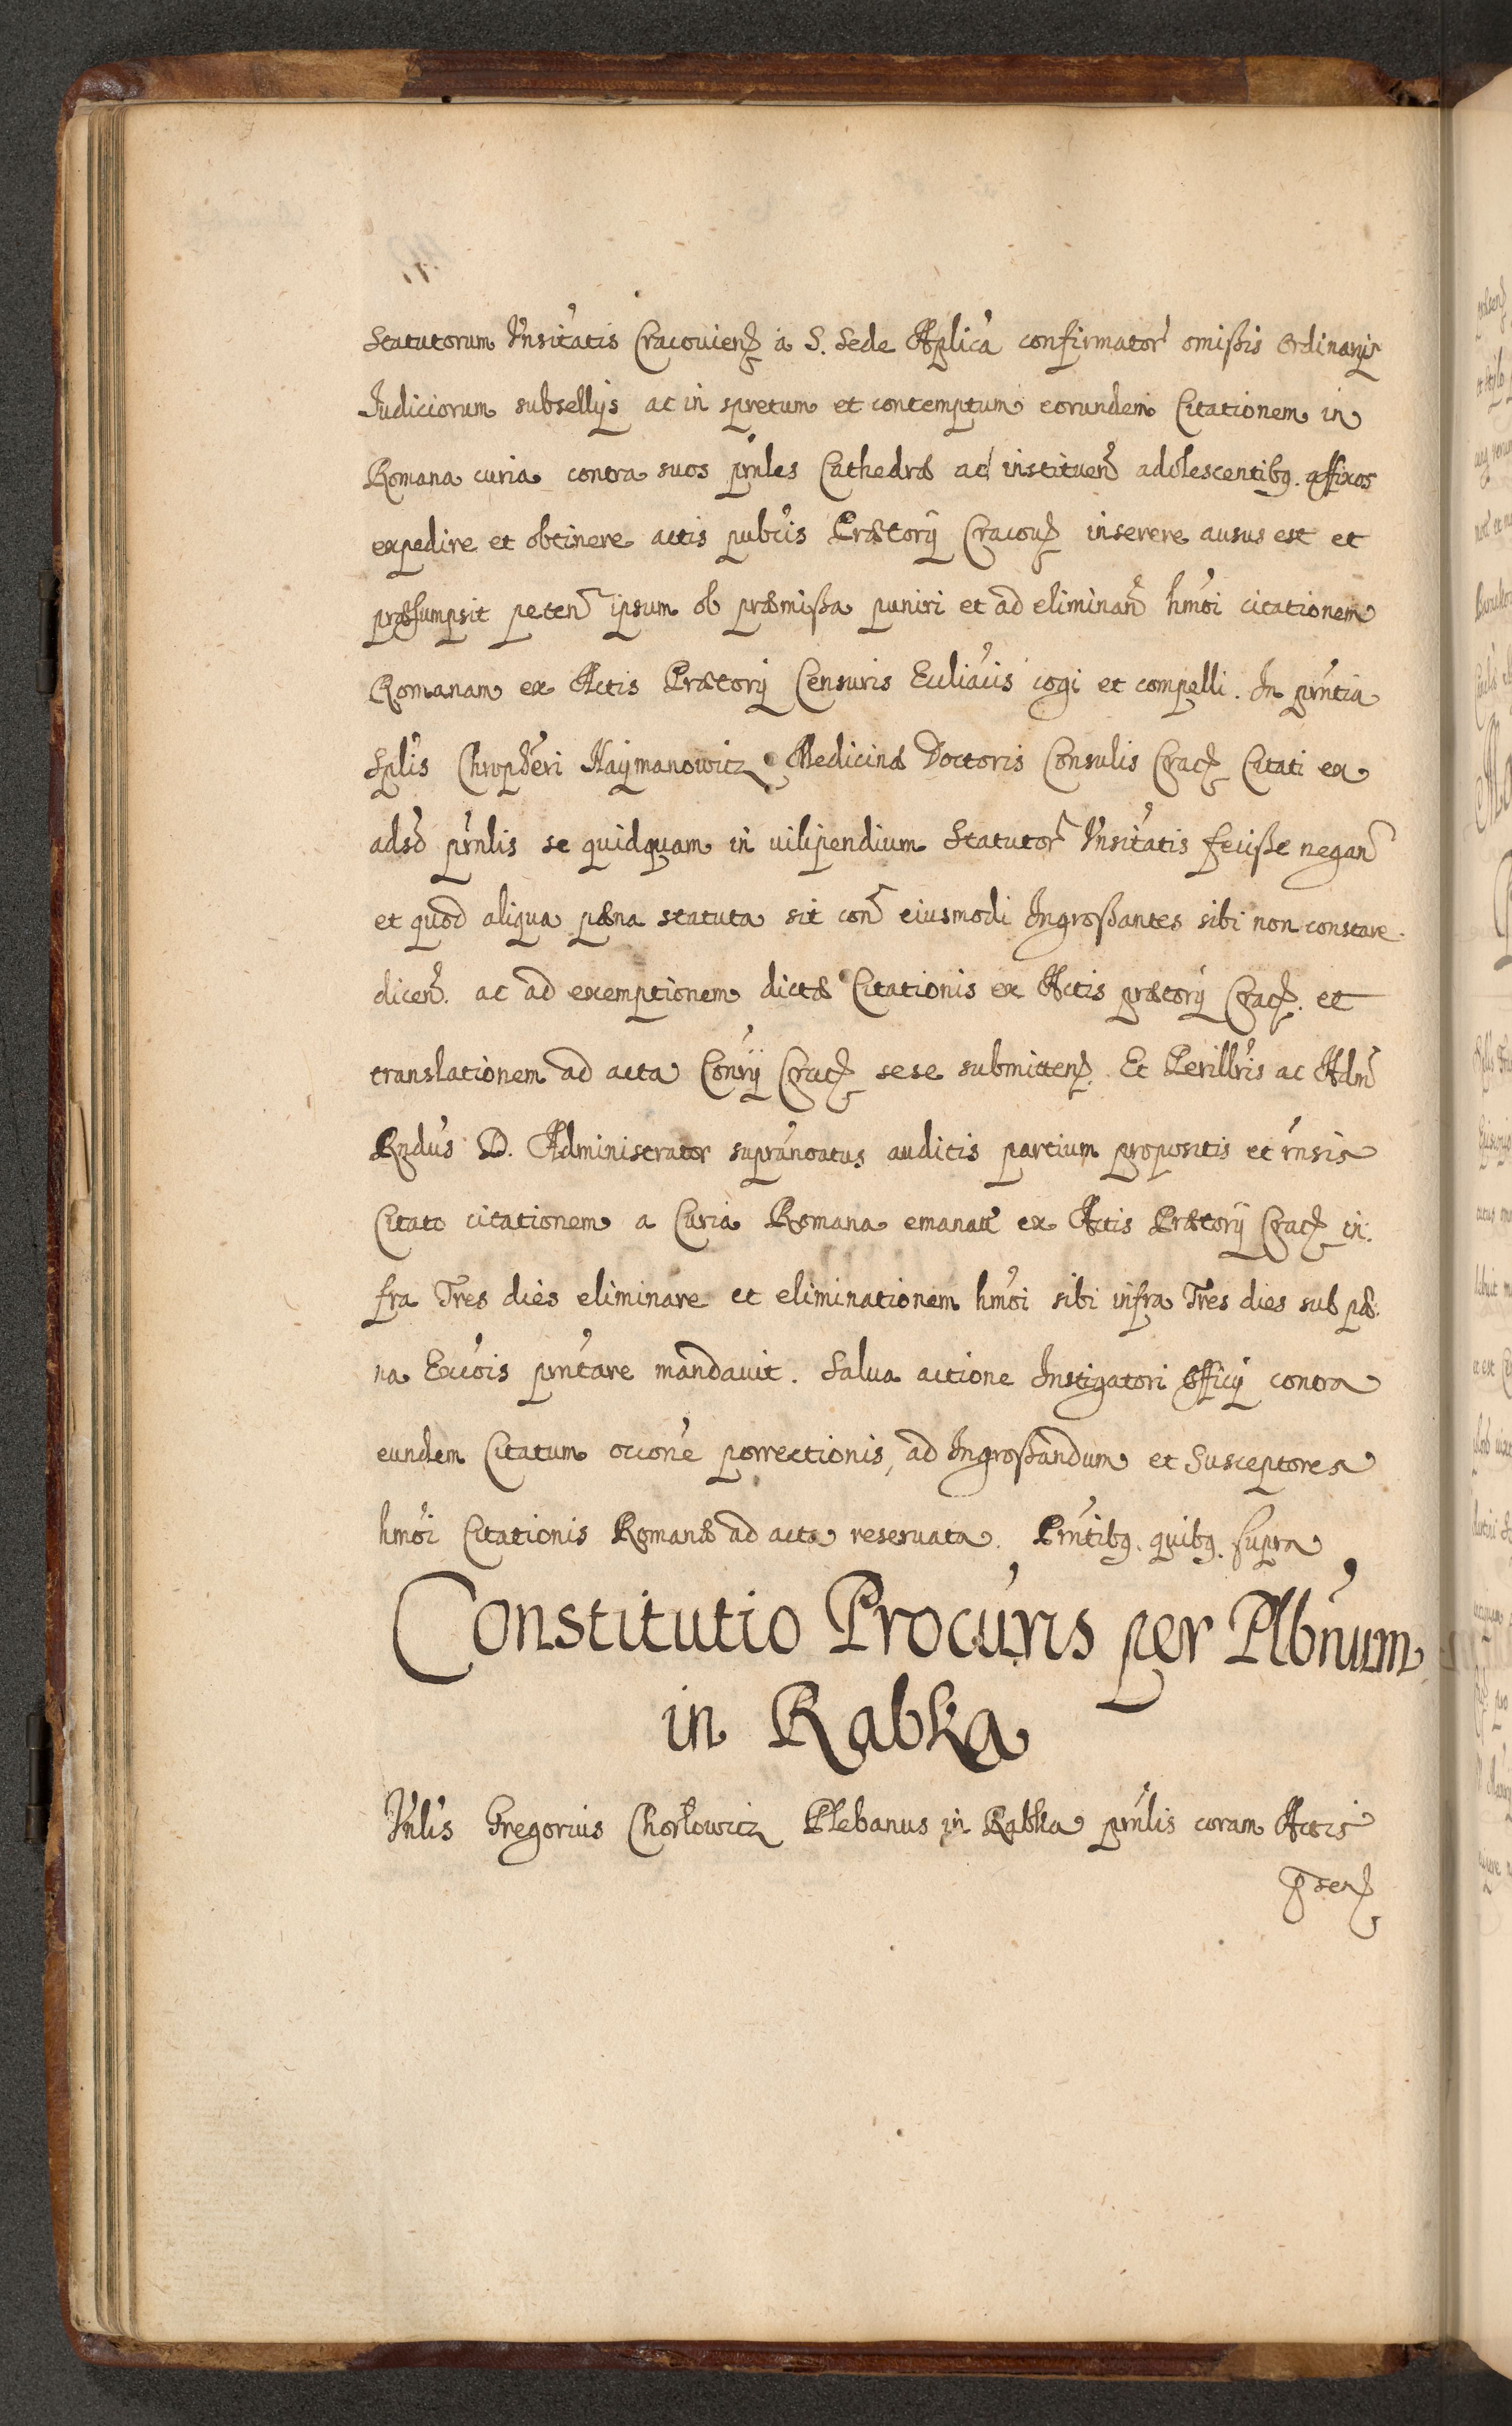 Statutorum Vnsitatis Cracouien a S. Sede Aplica confirmator omißis Ordinarijs
Iudiciorum subsellijs ac in spretum et contemptum eorundem Citationem in
Romana curia contra suos prnles Cathedræ ac instituen adolescentibq. affixos
expedire et obtinere actis pubcis Prætorij Cracou inserere ausus est et
præsumpsit peten ipsum ob præmißa puniri et ad eliminan hmoi citationem
Romanam ex Actis Prætorij Censuris Eccliacis cogi et compelli. In prntia
Splis Chropheri Naymanowicz Medicinæ Doctoris Consulis Crac Citati ex
adso prnlis se quidquam in vilipendium Statutor Vnsitatis fecisse negan
et quod aliqua pæna statuta sit con eiusmodi Ingroßantes sibi non constare
dicen. ac ad exemptionem dictæ Citationis ex Actis prætorij Crac. et
translationem ad acta Consrij Crac sese submitten. Et Perillris ac Adm
Rndus D. Administrator supranoatus auditis partium propositis et rnsis
Citato citationem a Curia Romana emanat ex Actis Prætorij Crac in:
fra Tres dies eliminare et eliminationem hmoi sibi infra Tres dies sub pæ:
na Excois prntare mandauit. Salua actione Instigatori Officij contra
eundem Citatum occone porrectionis, ad Ingroßandum et Susceptores
hmoi Citationis Romanæ ad acta reseruata. Prntibq. quibq. supra
Constitutio Procuris per Plbnum
in Rabka
Vnlis Gregorius Chorłowicz Plebanus in Rabka prnlis coram Actis